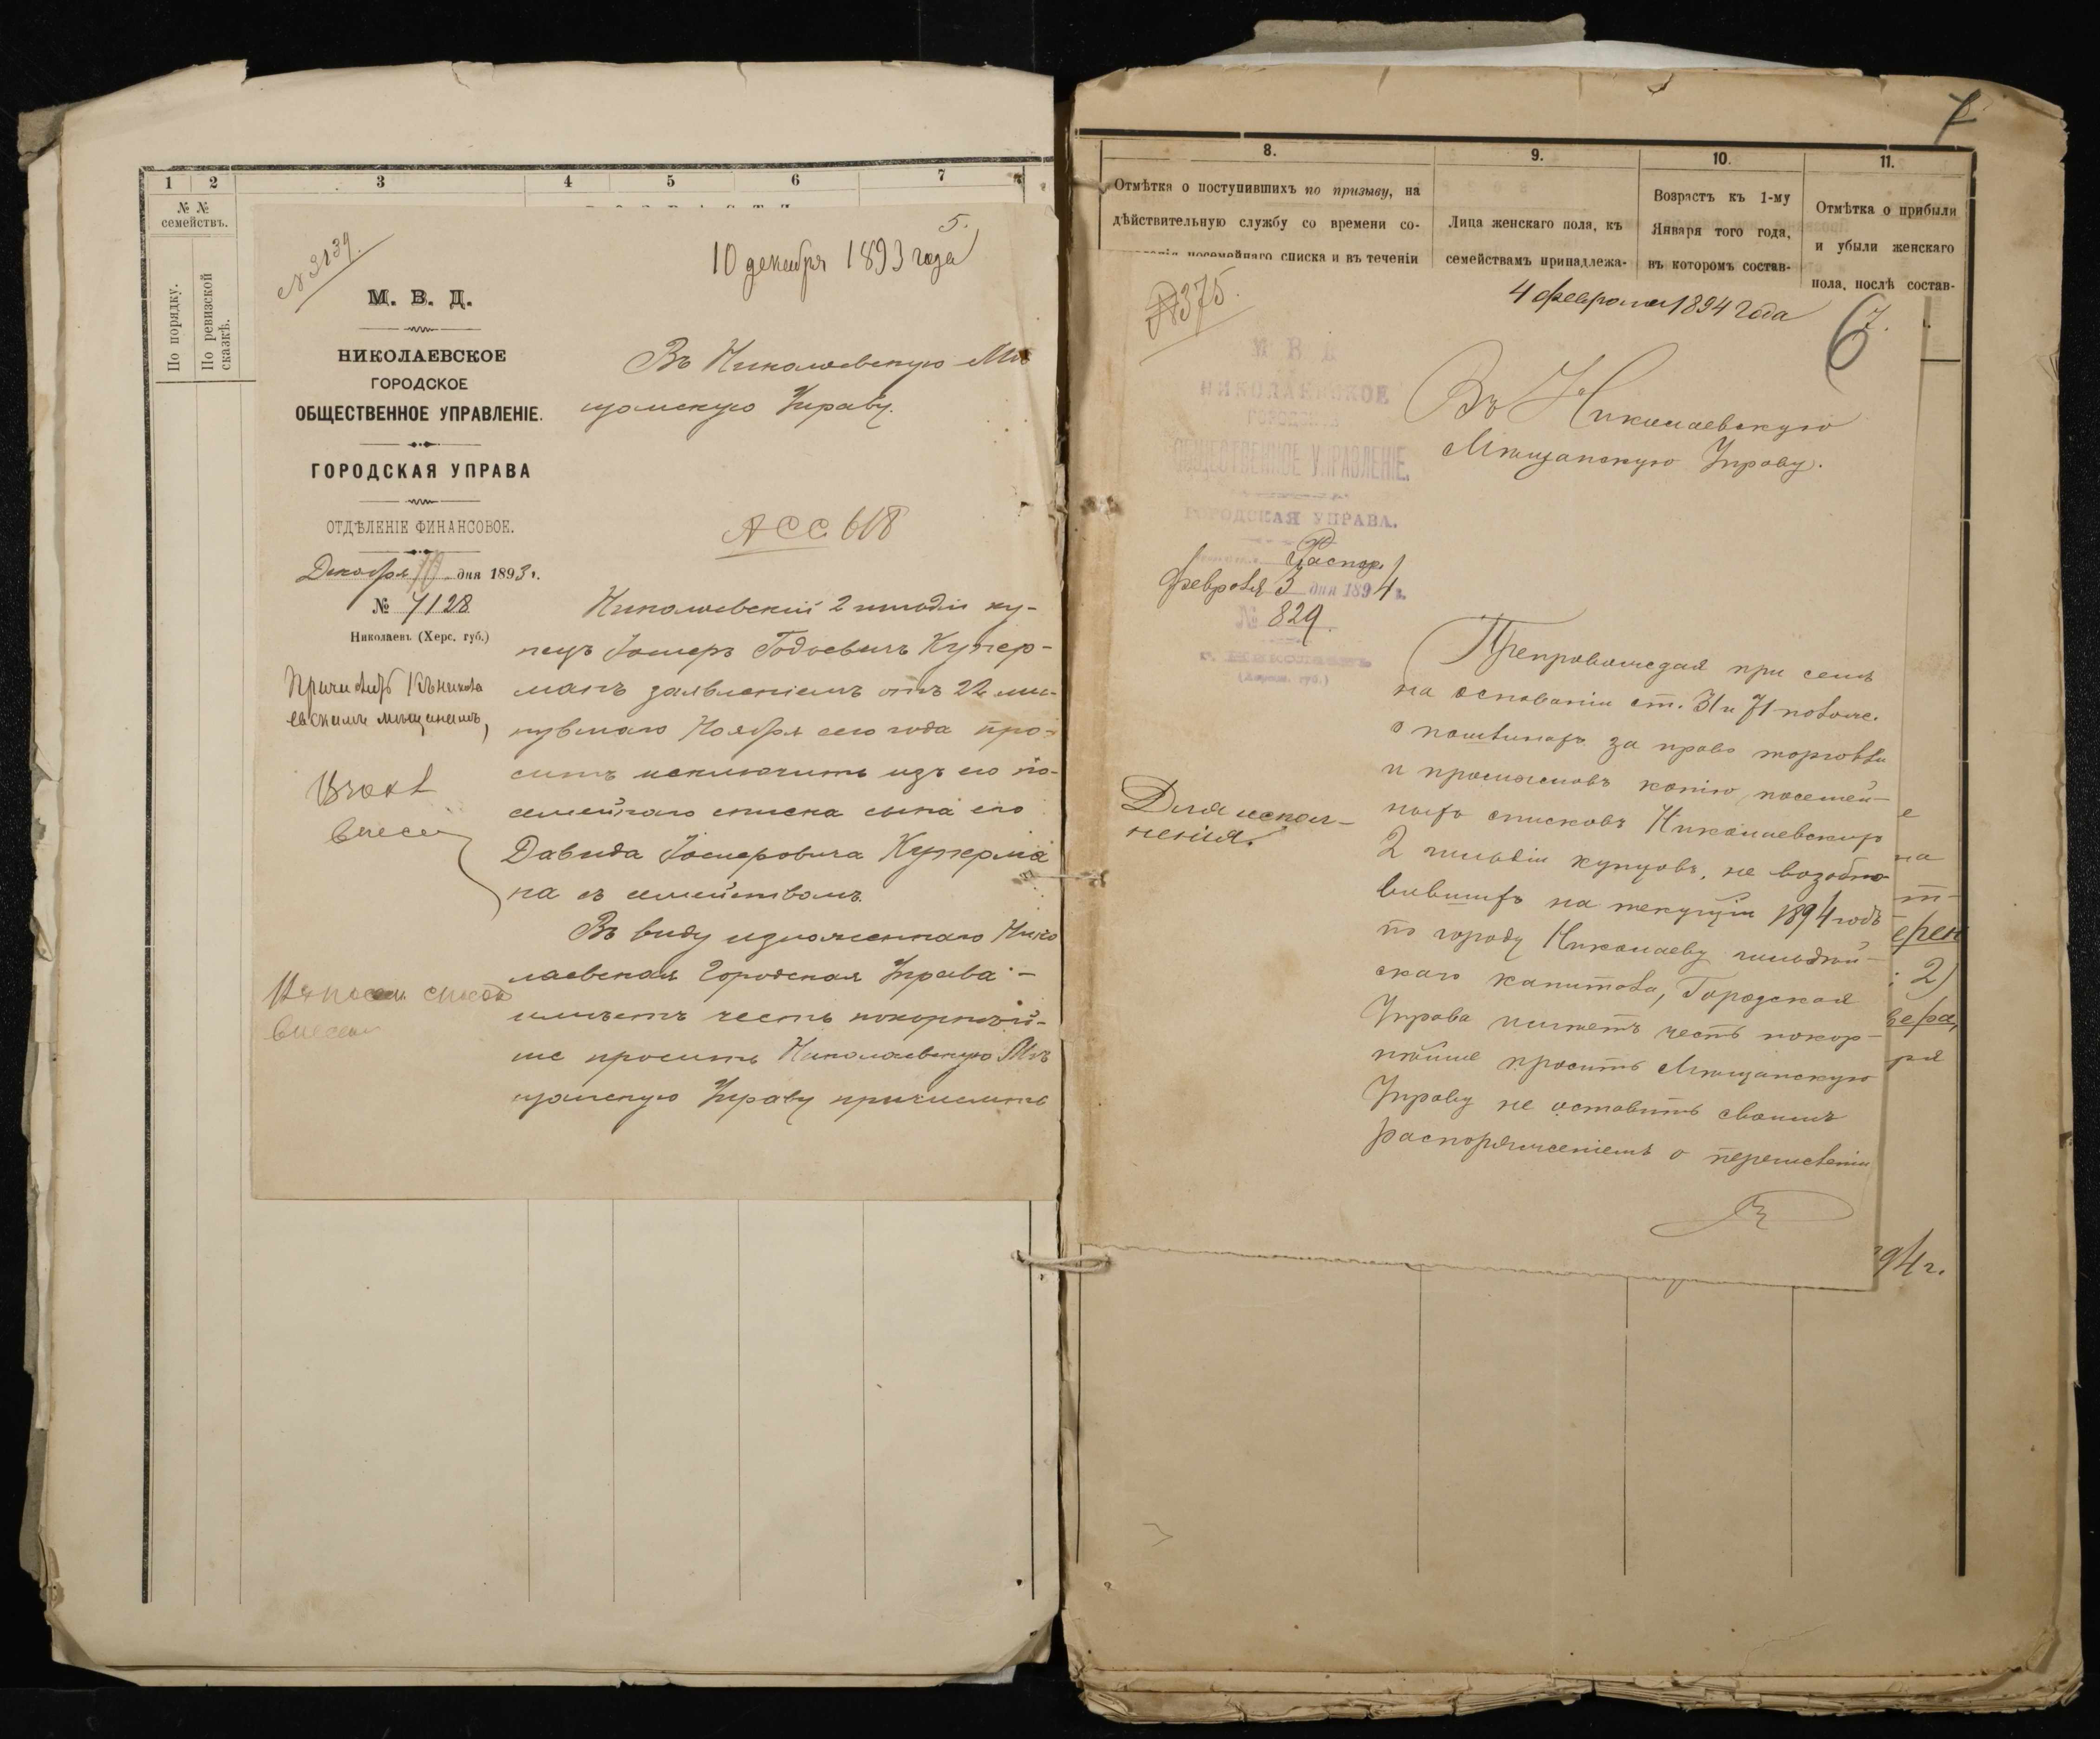 1 2 3 4 5 6 7
№ №
семействъ.
По порядку.
По ревизской
сказкѣ.
5.
10 декабря 1893 года
№ 3139.
М. В. Д.
НИКОЛАЕВСКОЕ
ГОРОДСКОЕ
ОБЩЕСТВЕННОЕ УПРАВЛЕНІЕ.
ГОРОДСКАЯ УПРАВА
ОТДѢЛЕНІЕ ФИНАНСОВОЕ.
Декабря 10 дня 1893 г.
№ 7128
Николаевъ (Херс. губ.)
Въ Николаевскую Мѣ
щанскую Управу.
618
Николаевскій 2 гильдіи ку-
пецъ Іосиеръ Годоевичъ Купер-
манъ заявленіемъ отъ 22 ми-
нувшаго Ноября сего года про-
ситъ исключить изъ его по-
семейнаго списка сына его
Давида Іосиеровича Куперма
на съ семействомъ.
Въ виду изложеннаго Нико
лаевская Городская Управа -
имѣетъ честь покорнѣй-
ше просить Николаевскую Мѣ
щанскую Управу причислить
внесен
8. 9. 10. 11.
Отмѣтка о поступившихъ по призыву, на
дѣйствительную службу со времени со-
посемейнаго списка и въ теченіи
Лица женскаго пола, къ
семействамъ принадлежа-
Возрастъ къ 1-му
Января того года,
въ которомъ состав-
Отмѣтка о прибыли
и убыли женскаго
пола, послѣ состав-
№ 375.
4 февраля 1894 года
6
7.
М В Д
НИКОЛАЕВСКОЕ
ГОРОДСКОЕ
ОБЩЕСТВЕННОЕ УПРАВЛЕНІЕ.
ГОРОДСКАЯ УПРАВА.
Распор.
февраля 3 дня 1894 г.
№ 829.
г. НИКОЛАЕВЪ
(Херсон. губ.)
Въ Николаевскую
Мѣщанскую Управу.
Для испол-
ненія.
Препровождая при семъ
на основаніи ст. 31 и 71 полож.
о пошлинахъ за право торговли
и промысловъ копію посемей-
ныхъ списковъ Николаевскихъ
2 гильдіи купцовъ, не возобно
вившихъ на текущій 1894 годъ
по городу Николаеву гильдій-
скаго капитала, Городская
Управа имѣетъ честь покор-
нѣйше просить Мѣщанскую
Управу не оставить своимъ
распоряженіемъ о перечисленіи
94 г.